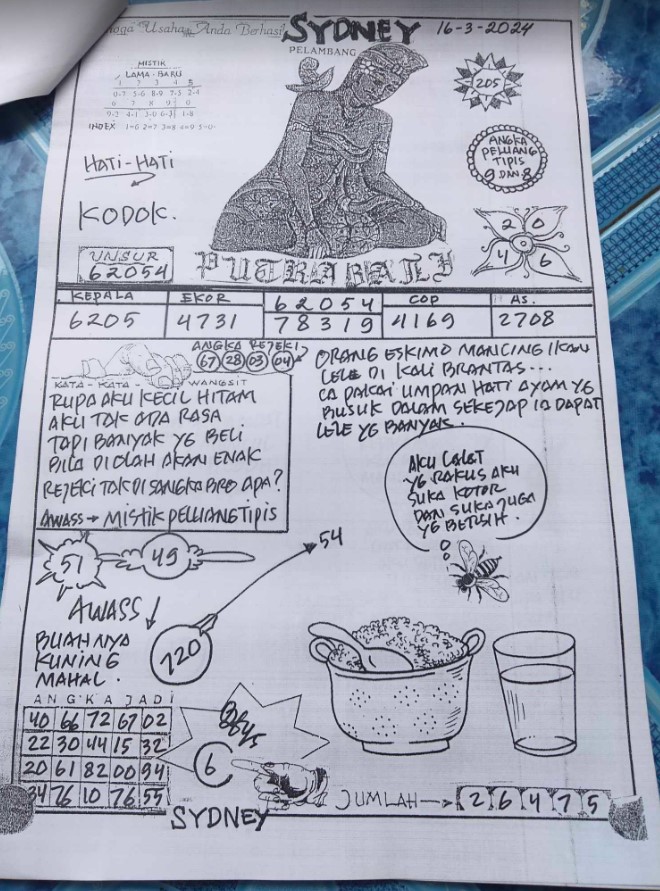 Usaha Anda Berhasil
SYDNEY
16-3-2024
PELAMBANG
MISTIK
LAMA - BARU
1 2 3 4 5
0-7 5-6 8-9 7-5 2-4
6 7 8 9 0
9-2 4-1 3-0 6-3 1-8
INDEX 1=6 2=7 3=8 4=9 5=0
205
ANGKA
PELUANG
TIPIS
9 DAN 8
HATI-HATI
KODOK.
2 0
4 6
UNSUR
62054
PUTRA BALI
KEPALA EKOR 62054 COP AS.
6205 4731 78319 4169 2708
ANGKA REJEKI
67 28 03 04
KATA - KATA WANGSIT
RUPA AKU KECIL HITAM
AKU TAK ADA RASA
TAPI BANYAK YG BELI
BILA DIOLAH AKAN ENAK
REJEKI TAK DISANGKA BRO APA?
AWASS → MISTIK PELUANG TIPIS
ORANG ESKIMO MANCING IKAN
LELE DI KALI BRANTAS...
IA PAKAI UMPAN HATI AYAM YG
BUSUK DALAM SEKEJAP IA DAPAT
LELE YG BANYAK.
AKU LALAT
YG RAKUS AKU
SUKA KOTOR
DAN SUKA JUGA
YG BERSIH.
51
49
54
AWASS
220
BUAHNYA
KUNING
MAHAL.
ANGKA JADI
40 66 72 67 02
22 30 44 15 32
20 61 82 00 94
34 76 10 76 55
6
SYDNEY
JUMLAH → 2 6 4 7 5